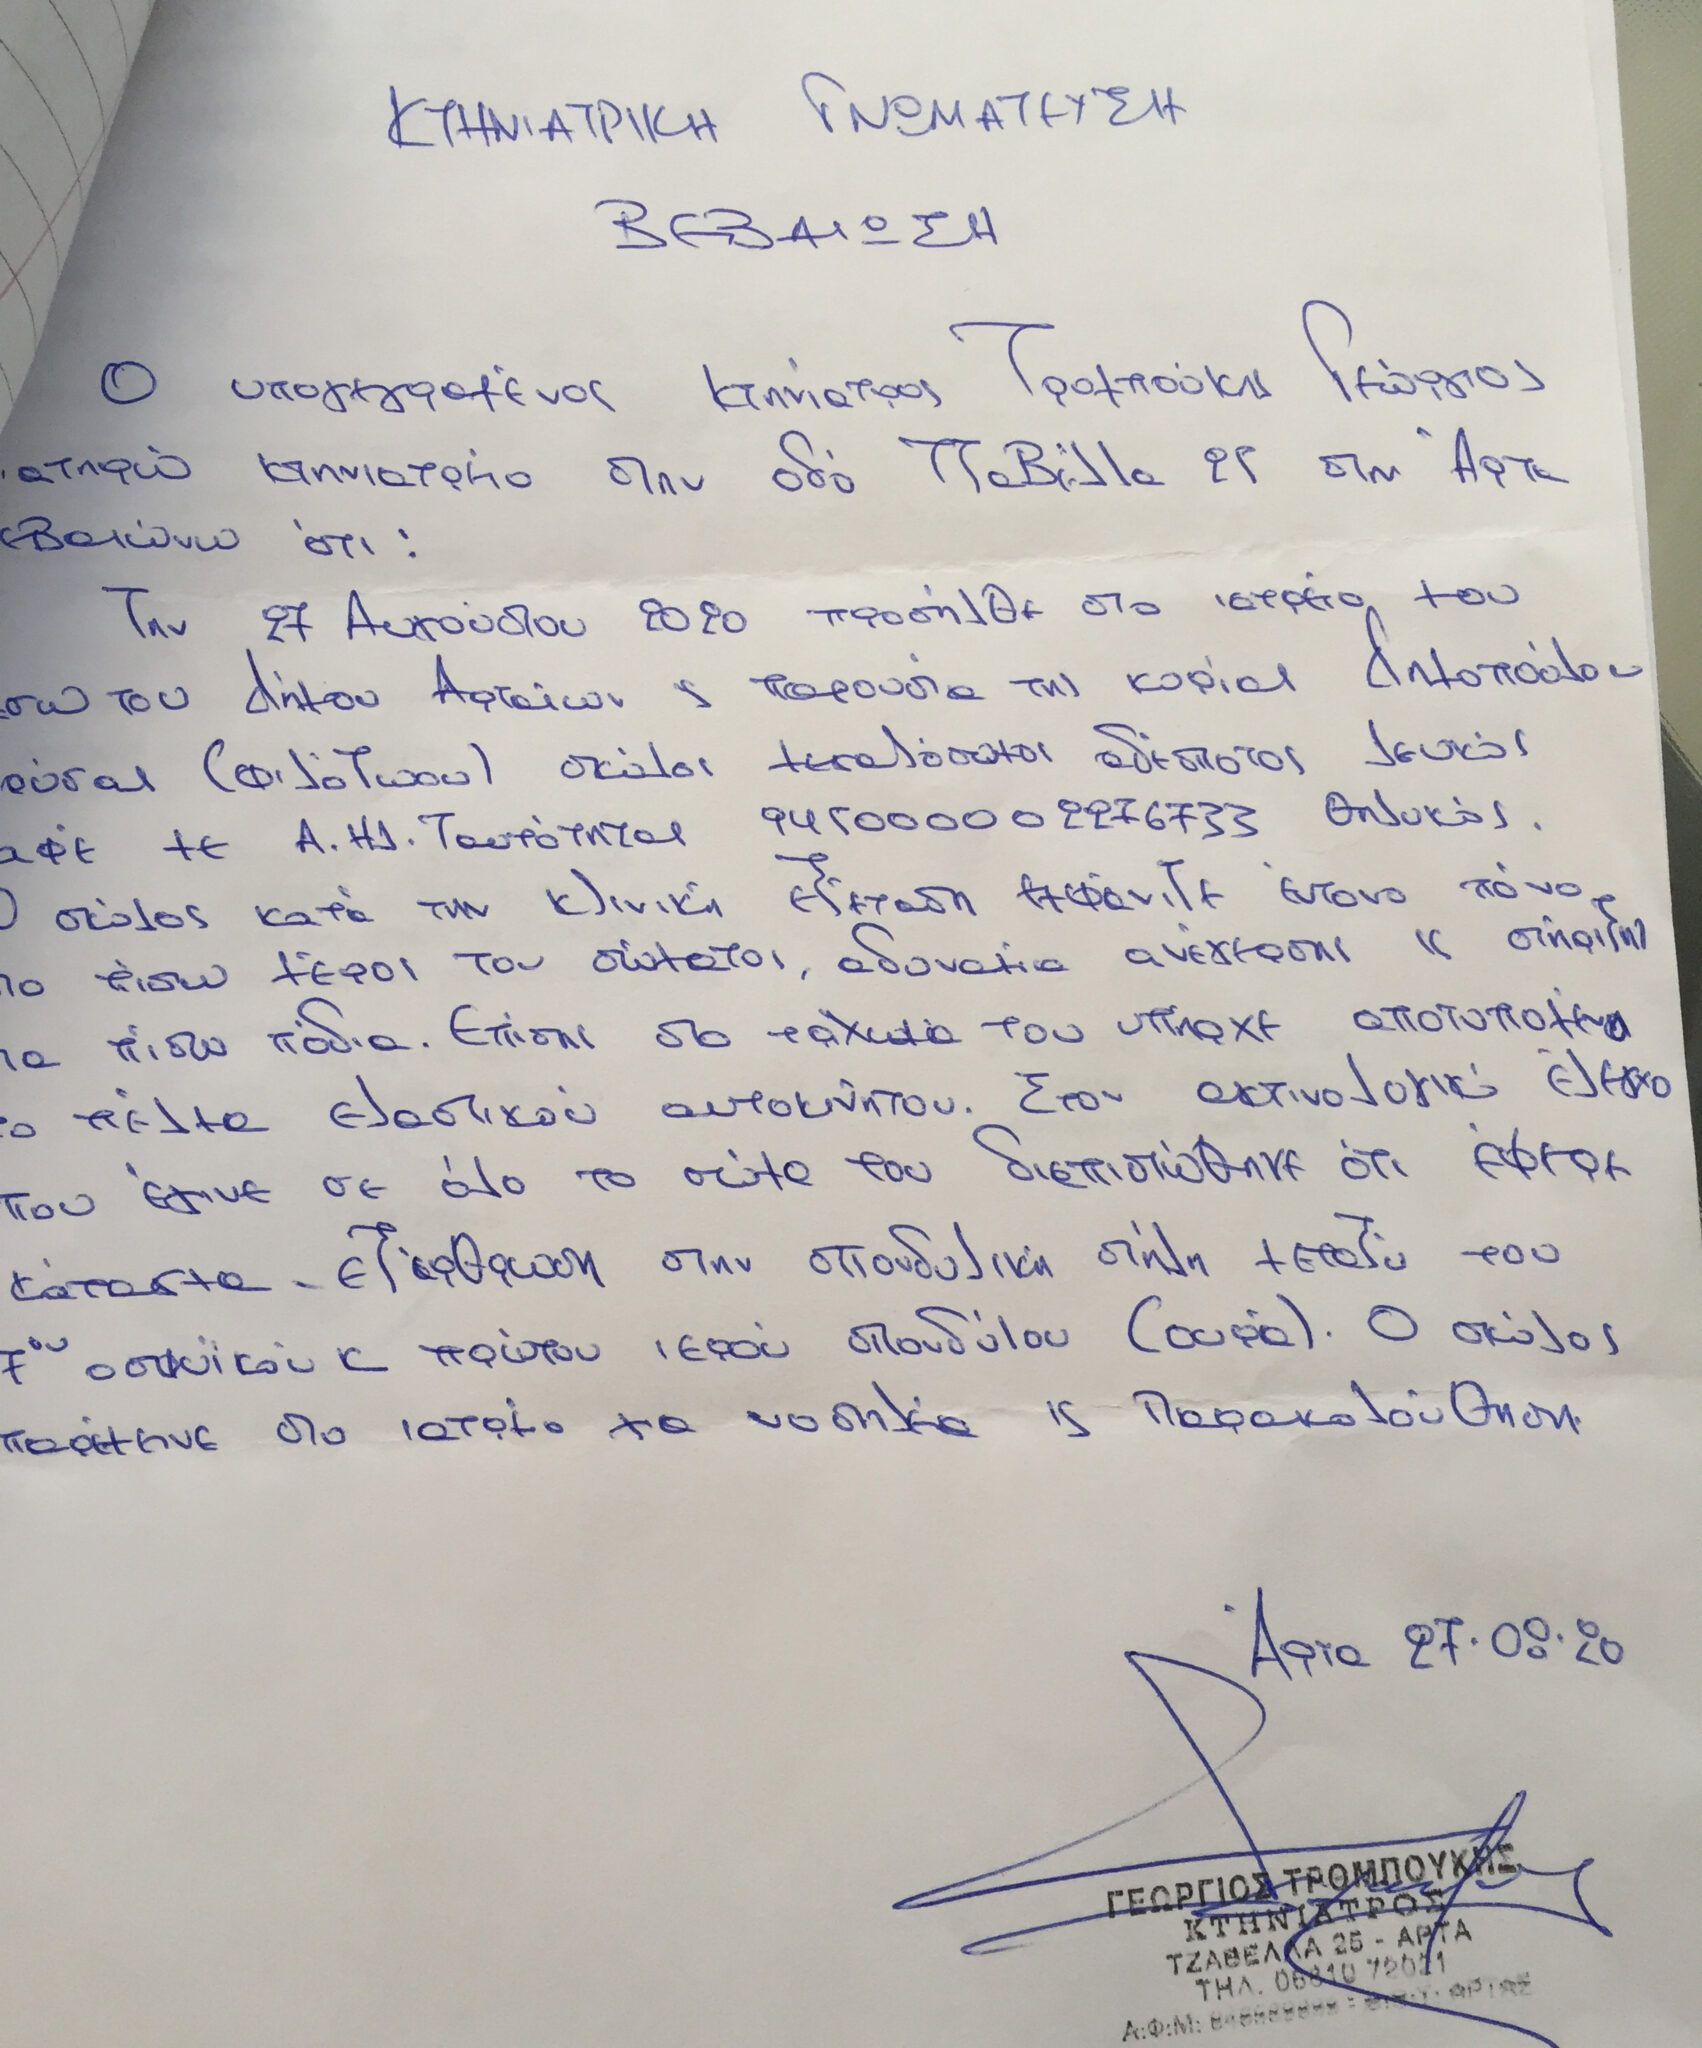 ΚΤΗΝΙΑΤΡΙΚΗ ΓΝΩΜΑΤΕΥΣΗ
ΒΕΒΑΙΩΣΗ
Ο υπογεγραμένος κτηνίατρος Τρομπούκης Γεώργιος
ατηρώ κτηνιατρείο στην οδό Τζαβέλλα 25 στην Άρτα
εβαιώνω ότι:
Την 27 Αυγούστου 2020 προσήλθε στο ιατρείο του
έσω του Δήμου Αρταίων ϗ παρουσία της κυρίας Δημοπούλου
ρύσας (φιλόζωου) σκύλος μεγαλόσωμος αδέσποτος λευκός
αφέ με Α.ΗΛ. Ταυτότητας 945000002276733 θηλυκός.
Ο σκύλος κατά την κλινική εξέταση εμφάνιζε έντονο πόνο
το πίσω μέρος του σώματος, αδυναμία ανέγερσης ϗ στήριξης
τα πίσω πόδια. Επίσης στο τρίχωμα του υπήρχε αποτυπομένο
το πέλμα ελαστικού αυτοκινήτου. Στον ακτινολογικό έλεγχο
που έγινε σε όλο το σώμα του διεπιστώθηκε ότι έφερε
κάταγμα - εξάρθρωση στην σπονδυλική στήλη μεταξύ του
7ου οσφυϊκού κ πρώτου ιερού σπονδύλου (ουρά). Ο σκύλος
παρέμεινε στο ιατρείο για νοσηλεία ϗ παρακολούθηση.
Άρτα 27.08.20
ΓΕΩΡΓΙΟΣ ΤΡΟΜΠΟΥΚΗΣ
ΚΤΗΝΙΑΤΡΟΣ
ΤΖΑΒΕΛΛΑ 25 - ΑΡΤΑ
ΤΗΛ. 06810 72021
Α.Φ.Μ: ΑΡΤΑΣ